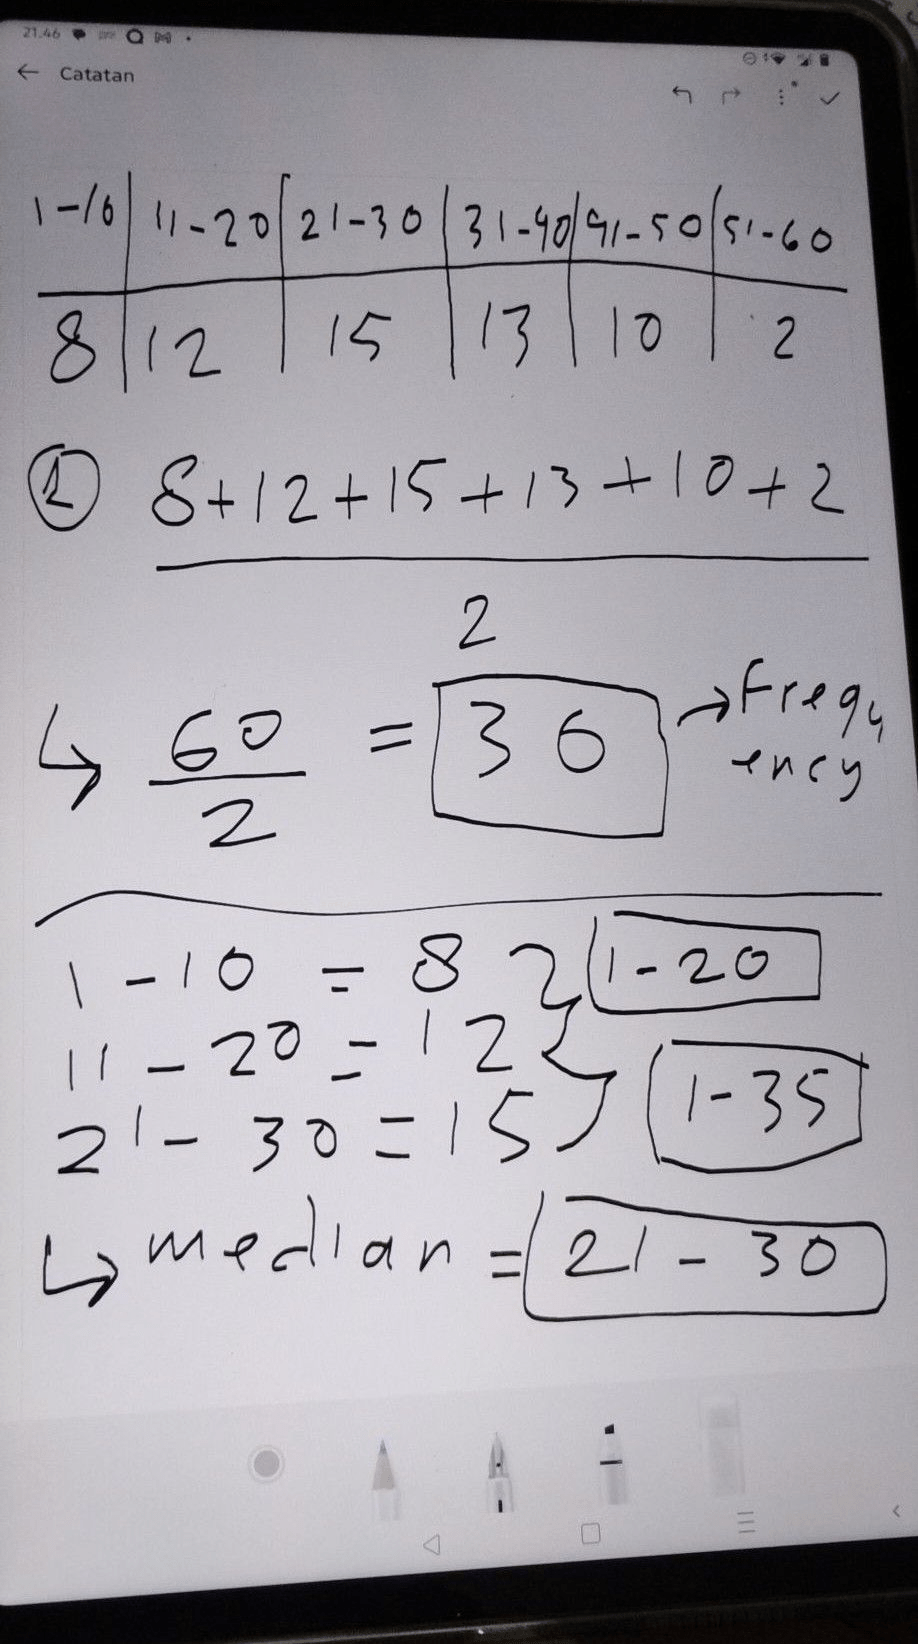 21.46
← Catatan
1-10 11-20 21-30 31-40 41-50 51-60
8 12 15 13 10 2
1 8+12+15+13+10+2
2
↳ 60 = 36 → Frequ
2 ency
1-10 = 8 } 1-20
11-20 = 12
21-30 = 15 } 1-35
↳ median = 21-30